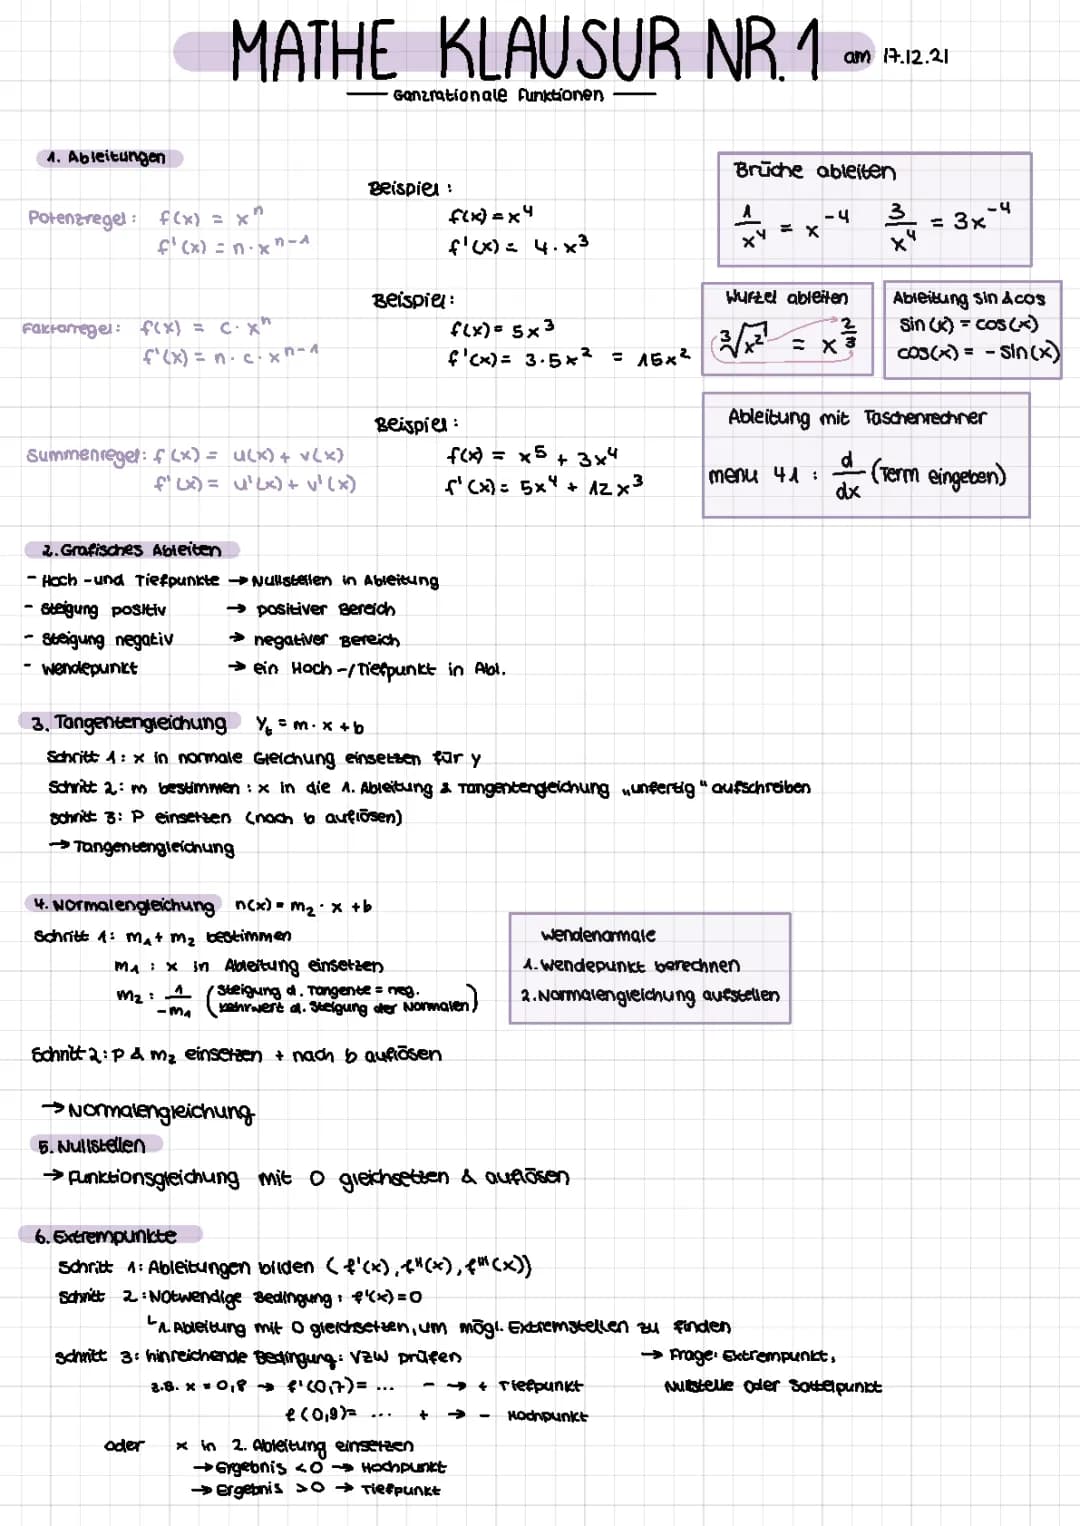 MATHE KLAUSUR NR.1 am 17.12.21
Ganzrationale Funktionen
1. Ableitungen
Beispiel:
Potenzregel: f(x) = xⁿ
f'(x) = n·xⁿ⁻¹
f(x) = x⁴
f'(x) = 4·x³
Brüche ableiten
1/x⁴ = x⁻⁴ 3/x⁴ = 3x⁻⁴
Beispiel:
Faktorregel: f(x) = c·xⁿ
f'(x) = n·c·xⁿ⁻¹
f(x) = 5x³
f'(x) = 3·5x² = 15x²
Wurzel ableiten
∛x² = x^(2/3)
Ableitung sin & cos
sin(x) = cos(x)
cos(x) = -sin(x)
Beispiel:
Summenregel: f(x) = u(x) + v(x)
f'(x) = u'(x) + v'(x)
f(x) = x⁵ + 3x⁴
f'(x) = 5x⁴ + 12x³
Ableitung mit Taschenrechner
menu 41 : d/dx (Term eingeben)
2. Grafisches Ableiten
- Hoch-und Tiefpunkte → Nullstellen in Ableitung
- Steigung positiv → positiver Bereich
- Steigung negativ → negativer Bereich
- Wendepunkt → ein Hoch-/Tiefpunkt in Abl.
3. Tangentengleichung yₜ = m·x+b
Schritt 1: x in normale Gleichung einsetzen für y
Schritt 2: m bestimmen : x in die 1. Ableitung & Tangentengleichung „unfertig" aufschreiben
Schritt 3: P einsetzen (nach b auflösen)
→ Tangentengleichung
4. Normalengleichung n(x) = m₂·x+b
Schritt 1: m₁+m₂ bestimmen
m₁ : x in Ableitung einsetzen
m₂ : 1/-m₁ (Steigung d. Tangente = neg.
Kehrwert d. Steigung der Normalen)
Schritt 2: P & m₂ einsetzen + nach b auflösen
→ Normalengleichung
Wendenormale
1. Wendepunkt berechnen
2. Normalengleichung aufstellen
5. Nullstellen
→ Funktionsgleichung mit 0 gleichsetzen & auflösen
6. Extrempunkte
Schritt 1: Ableitungen bilden (f'(x), f''(x), f'''(x))
Schritt 2: Notwendige Bedingung: f'(x)=0
↳ 1. Ableitung mit 0 gleichsetzen, um mögl. Extremstellen zu finden
Schritt 3: hinreichende Bedingung: VZW prüfen
→ Frage: Extrempunkt,
Nullstelle oder Sattelpunkt
z.B. x = 0,8 → f'(0,7)= ... - → + Tiefpunkt
f(0,9)= ... + → - Hochpunkt
oder x in 2. Ableitung einsetzen
→ Ergebnis <0 → Hochpunkt
→ Ergebnis >0 → Tiefpunkt